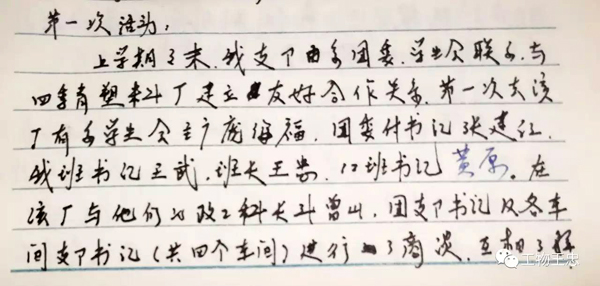 第一次活动:
上学期之末,我支部由系团委、学生会联系,与
四季青塑料厂建立友好合作关系.第一次去该
厂有系学生会主席庞海福,团委付书记张建红,
我班书记王武,班长王忠,12班书记黄原。在
该厂与他们的政工科长斗曾山,团支部书记及各车
间支部书记(共四个车间)进行了商谈,互相了解
工物王忠